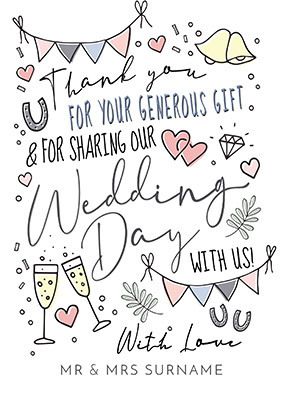 Thank you
FOR YOUR GENEROUS GIFT
& FOR SHARING OUR
Wedding
Day
WITH US!
With Love
MR & MRS SURNAME